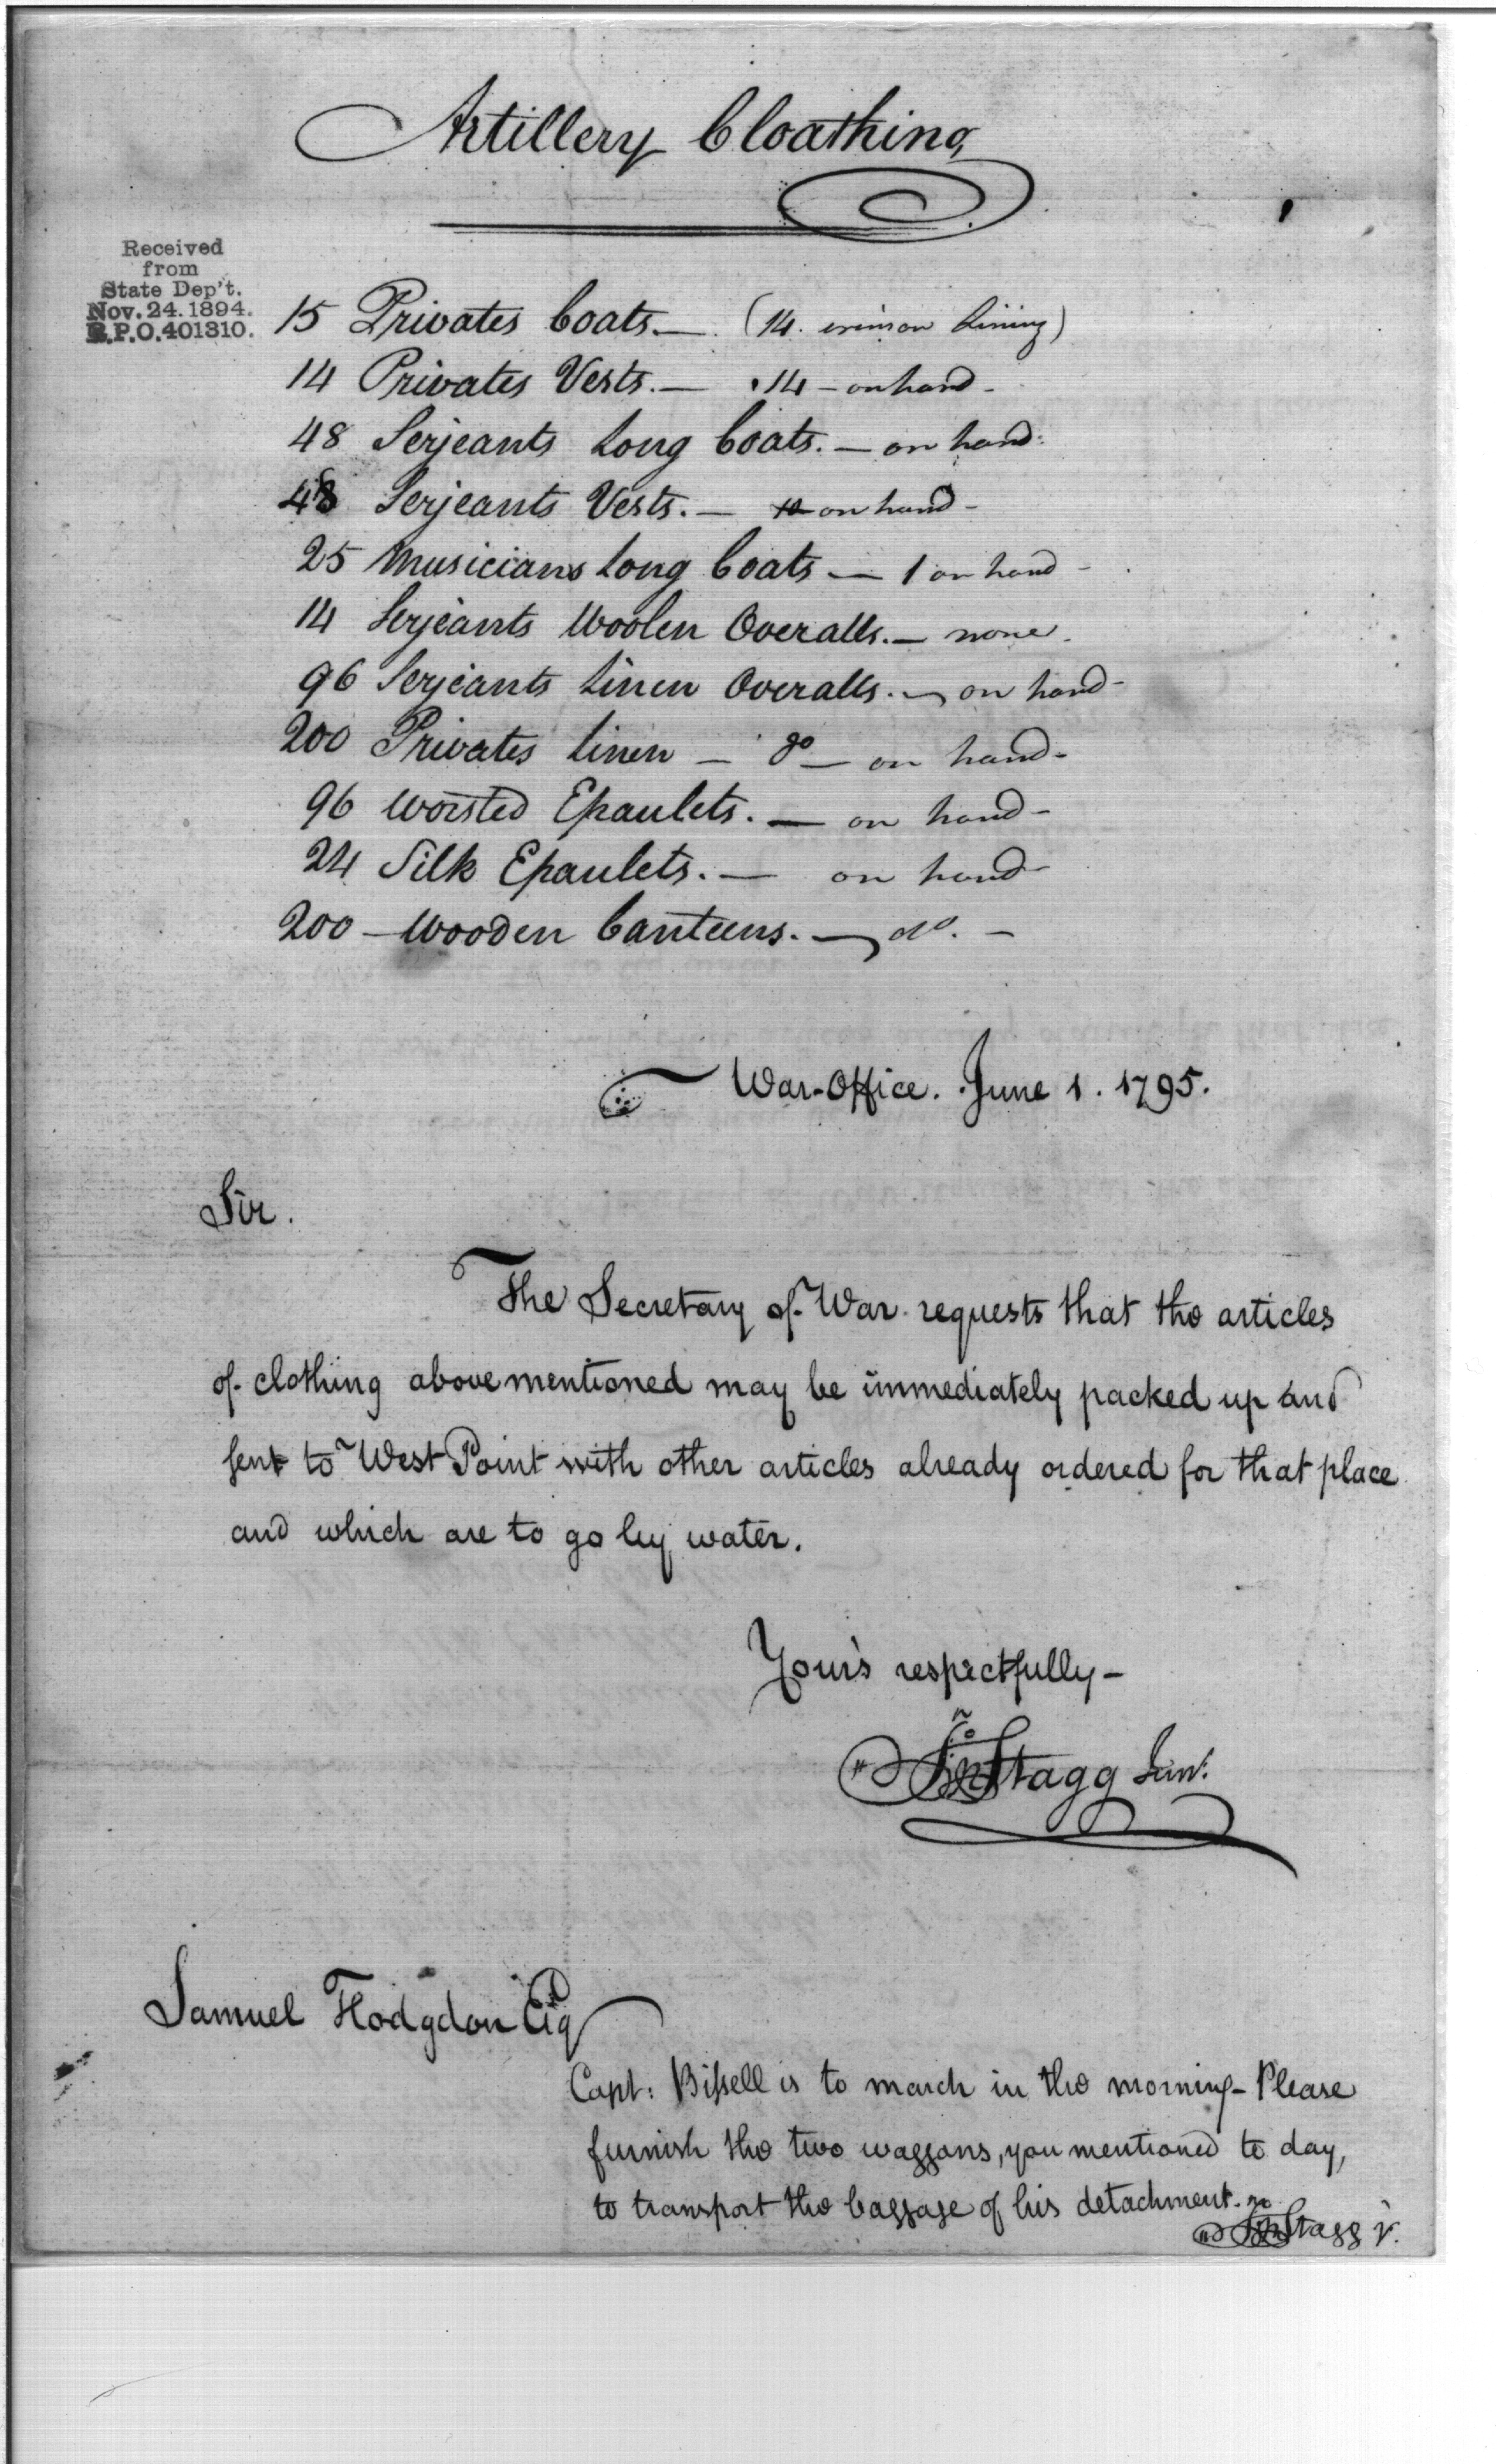 Artillery Cloathing
Received
from
State Dep't.
Nov. 24. 1894.
R.P.O. 401310.
15 Privates Coats. — (14. crimson lining)
14 Privates Vests. — 14 – on hand –
48 Serjeants Long Coats. — on hand.
48 Serjeants Vests. — on hand –
25 Musicians Long Coats — 1 on hand –
14 Serjeants Woolen Overalls. — none.
96 Serjeants Linen Overalls. — on hand –
200 Privates Linen — do — on hand –
96 Worsted Epaulets. — on hand –
24 Silk Epaulets. — on hand –
200 — Wooden Canteens. — do. –
War-Office. June 1. 1795.
Sir.
The Secretary of War requests that the articles
of clothing above mentioned may be immediately packed up and
sent to West Point with other articles already ordered for that place
and which are to go by water.
Your's respectfully –
Jno Stagg Junr.
Samuel Hodgdon Esq
Capt: Bissell is to march in the morning – Please
furnish the two waggons, you mentioned to day,
to transport the baggage of his detachment.
Jno Stagg Jr.